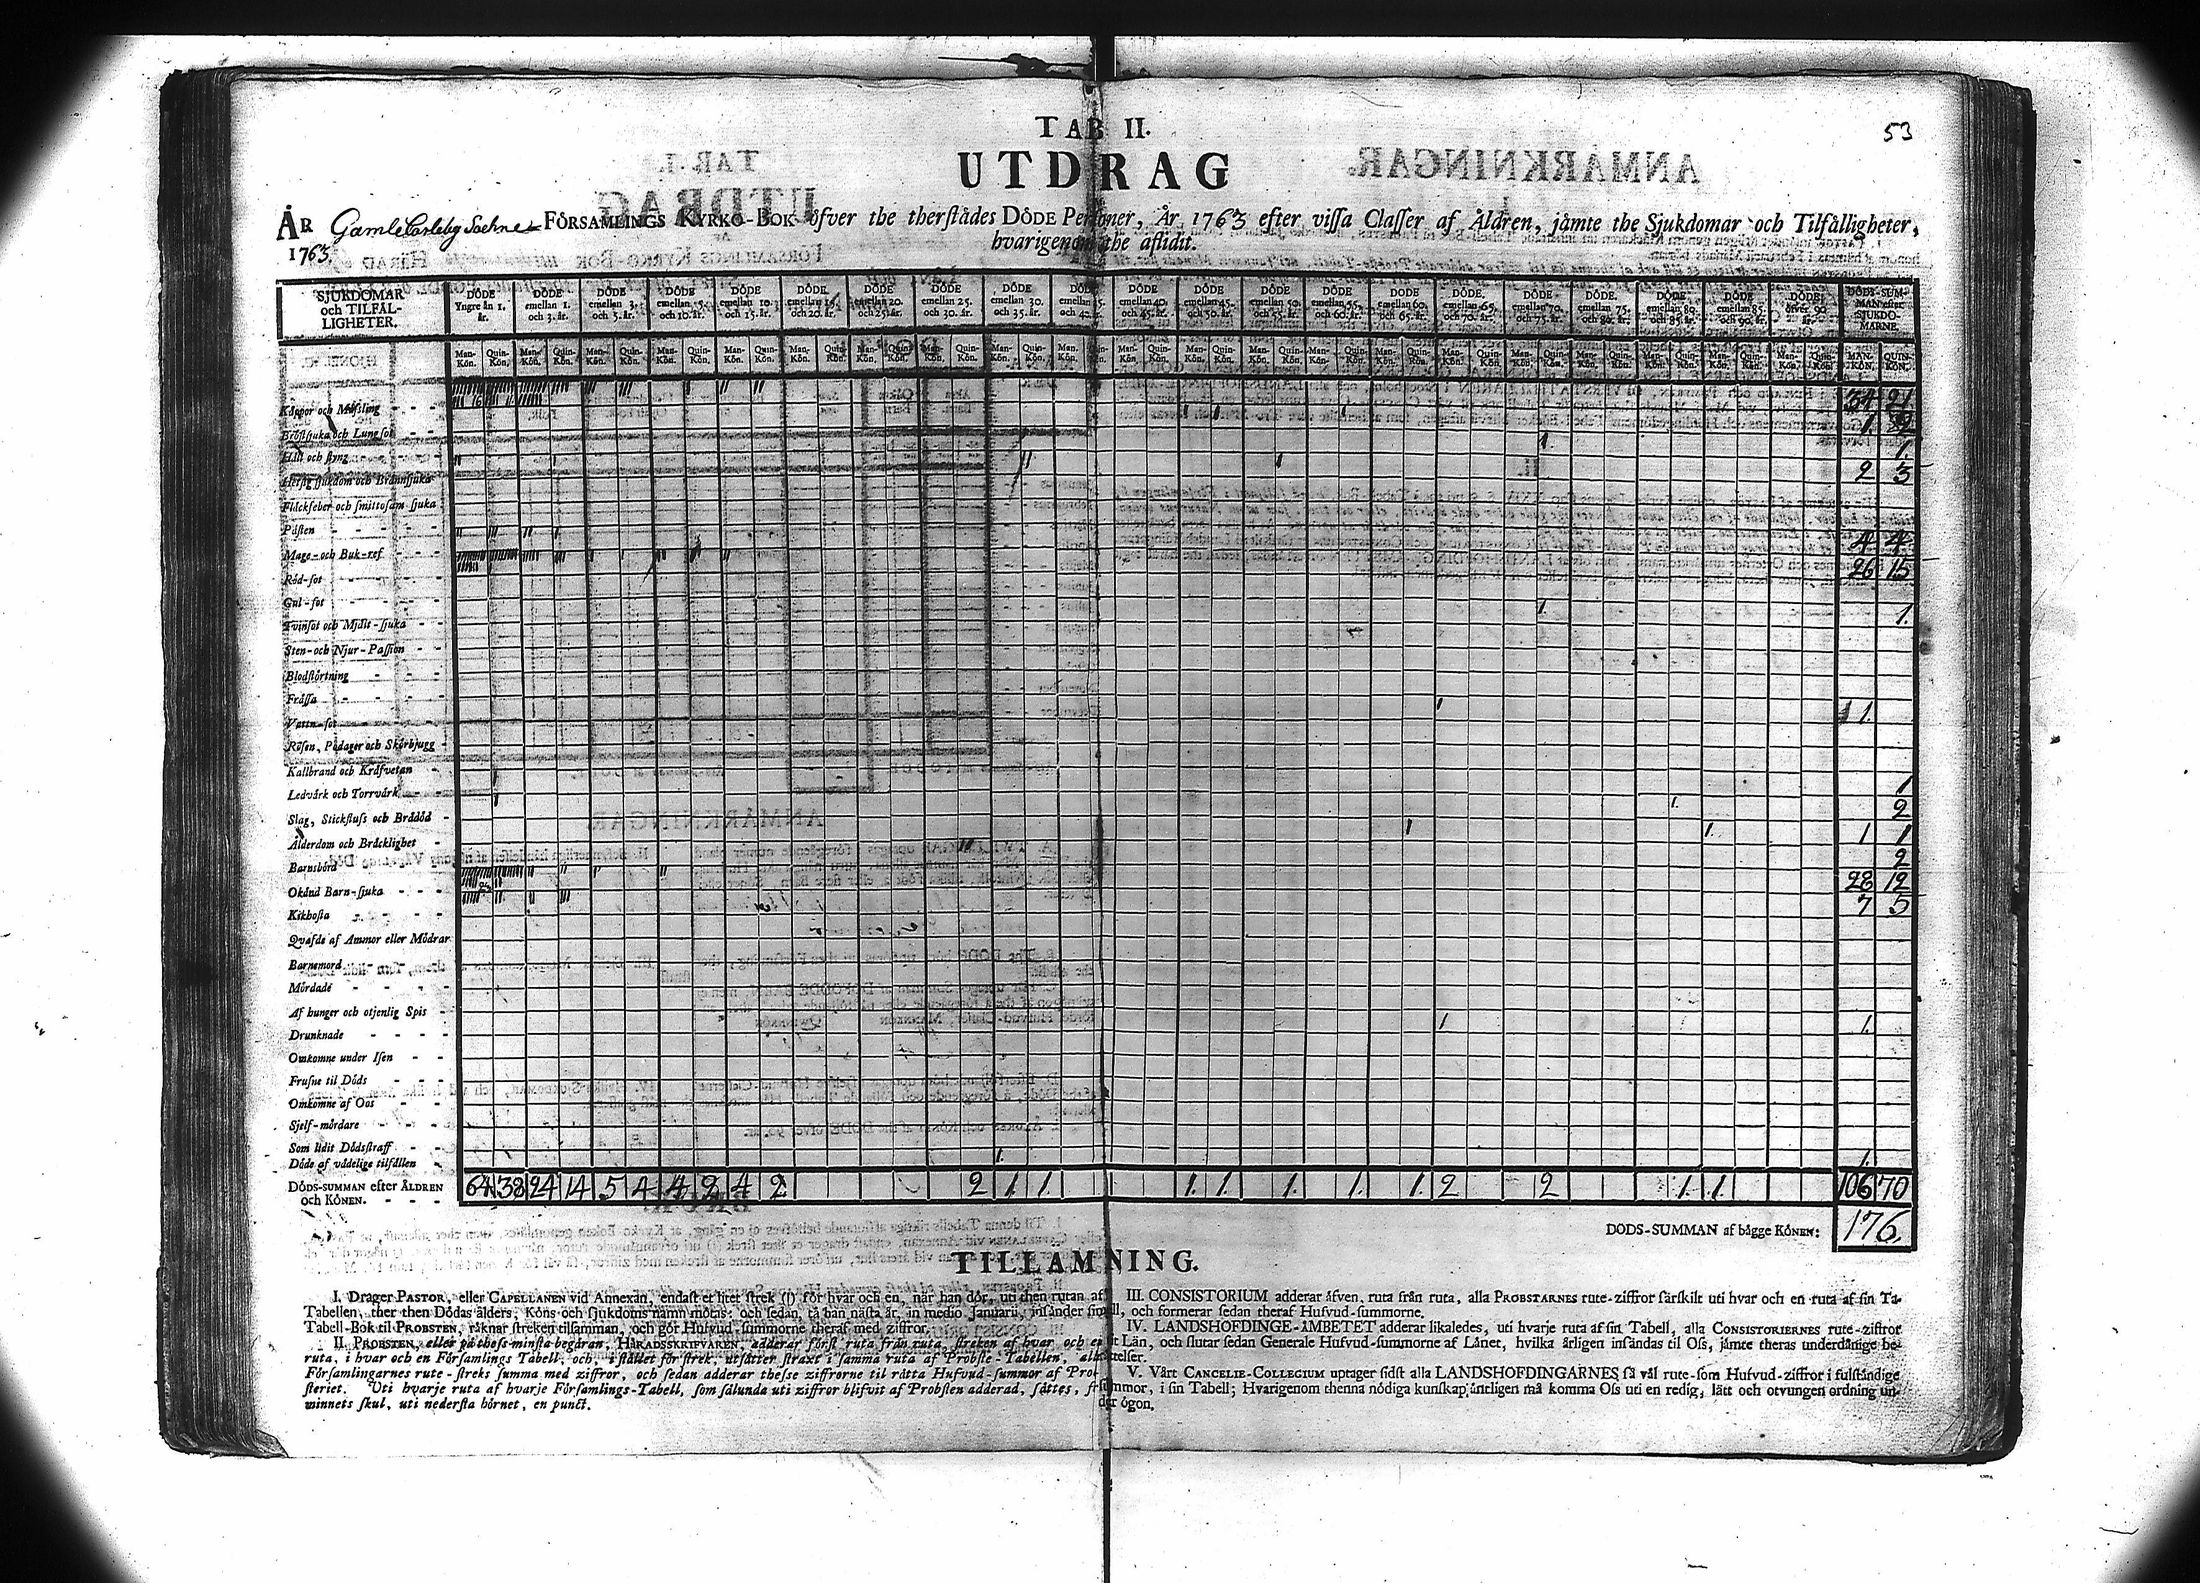 53
TAB II.
UTDRAG
ÅR Gamle Carleby Sochne FÖRSAMLINGS KYRKO-BOK öfver the therstådes DÖDE Personer, År 1763 efter vissa Classer af Åldren, jämte the Sjukdomar och Tilfälligheter,
1763. hvarigenom the aflidit.
SJUKDOMAR och TILFÄL-LIGHETER.
DÖDE Yngre än 1. år.
DÖDE emellan 1. och 3. år.
DÖDE emellan 3. och 5. år.
DÖDE emellan 5. och 10. år.
DÖDE emellan 10. och 15. år.
DÖDE emellan 15. och 20. år.
DÖDE emellan 20. och 25. år.
DÖDE emellan 25. och 30. år.
DÖDE emellan 30. och 35. år.
DÖDE emellan 35. och 40. år.
DÖDE emellan 40. och 45. år.
DÖDE emellan 45. och 50. år.
DÖDE emellan 50. och 55. år.
DÖDE emellan 55. och 60. år.
DÖDE emellan 60. och 65. år.
DÖDE emellan 65. och 70. år.
DÖDE emellan 70. och 75. år.
DÖDE emellan 75. och 80. år.
DÖDE emellan 80. och 85. år.
DÖDE emellan 85. och 90. år.
DÖDE öfver 90. år.
DÖDS-SUM-MAN efter SJUKDO-MARNE.
Man-Kön. Quin-Kön.
MAN-KÖN. QUIN-KÖN.
Kåppor och Mässling - - - 34 21
Bröstsjuka och Lungsot - - 1. 2
Håll och styng - - - 1.
Hetsig sjukdom och Brännsjuka 2 3
Fläckfeber och smittosam sjuka
Pästen - - - -
Mage- och Buk-ref - - - 4 4
Röd-sot - - - - 26 15
Gul-sot - - - -
Tvinsot och Mjält-sjuka - - 1.
Sten- och Njur-Passion - -
Blodstörtning - - -
Frässa - - - -
Vattn-sot - - - - 1.
Rosen, Pådager och Skörbjugg -
Kallbrand och Kräfvetan -
Ledvärk och Torrvärk - - 1
Slag, Stickfluss och Brådöd - 2
Ålderdom och Bräcklighet - 1 1
Barnsbörd - - - 2
Okänd Barn-sjuka - - - 28 12
Kikhosta - - - 7 5
Qvafde af Ammor eller Mödrar
Barnemord - - - -
Mördade - - - -
Af hunger och otjenlig Spis -
Drunknade - - - - 1.
Omkomne under Isen - -
Frusne til Döds - - -
Omkomne af Oos - -
Sjelf-mördare - - -
Som lidit Dödsstraff - -
Döde af vådelige tilfällen - 1.
DÖDS-SUMMAN efter ÅLDREN och KÖNEN. - - - 64 38 24 14 5 4 4 2 4 2 2 1. 1. 1. 1. 1. 1. 1. 2 2 1. 1. 106 70
DÖDS-SUMMAN af bägge KÖNEN: 176.
TILLÄMNING.
I. Drager PASTOR, eller CAPELLANEN vid Annexan, endast et litet strek (|) för hvar och en, när han dör, uti then rutan af
Tabellen, ther then Dödas ålders, Köns och sjukdoms namn mötas: och sedan, tå han nästa år, in medio Januarii, insänder sin
Tabell-Bok til PROBSTEN, räknar streken tilsamman, och gör Hufvud-summorne theraf med ziffror.
II. PROBSTEN, eller på thess minsta begäran, HÄRADSSKRIFVAREN, adderar först ruta från ruta, streken af hvar och en
ruta, i hvar och en Församlings Tabell, och, i stället för strek, utsätter straxt i samma ruta af Probste-Tabellen, alla
Församlingarnes rute-streks summa med ziffror, och sedan adderar thesse ziffrorne til rätta Hufvud-summor af Pro-
steriet. Uti hvarje ruta af hvarje Församlings-Tabell, som sålunda uti ziffror blifvit af Probsten adderad, sättes,
minnets skul, uti nedersta hörnet, en punct.
III. CONSISTORIUM adderar äfven, ruta från ruta, alla PROBSTARNES rute-ziffror särskilt uti hvar och en ruta af sin Ta-
bell, och formerar sedan theraf Hufvud-summorne.
IV. LANDSHÖFDINGE-ÄMBETET adderar likaledes, uti hvarje ruta af sin Tabell, alla CONSISTORIERNES rute-ziffror
Län, och slutar sedan Generale Hufvud-summorne af Länet, hvilka årligen insändas til Oss, jämte theras underdånige be-
rättelser.
V. Vårt CANCELIE-COLLEGIUM uptager sidst alla LANDSHÖFDINGARNES så väl rute-som Hufvud-ziffror i fulständige
summor, i sin Tabell; Hvarigenom thenna nödiga kunskap änteligen må komma Oss uti en redig, lätt och otvungen ordning un-
der ögon.